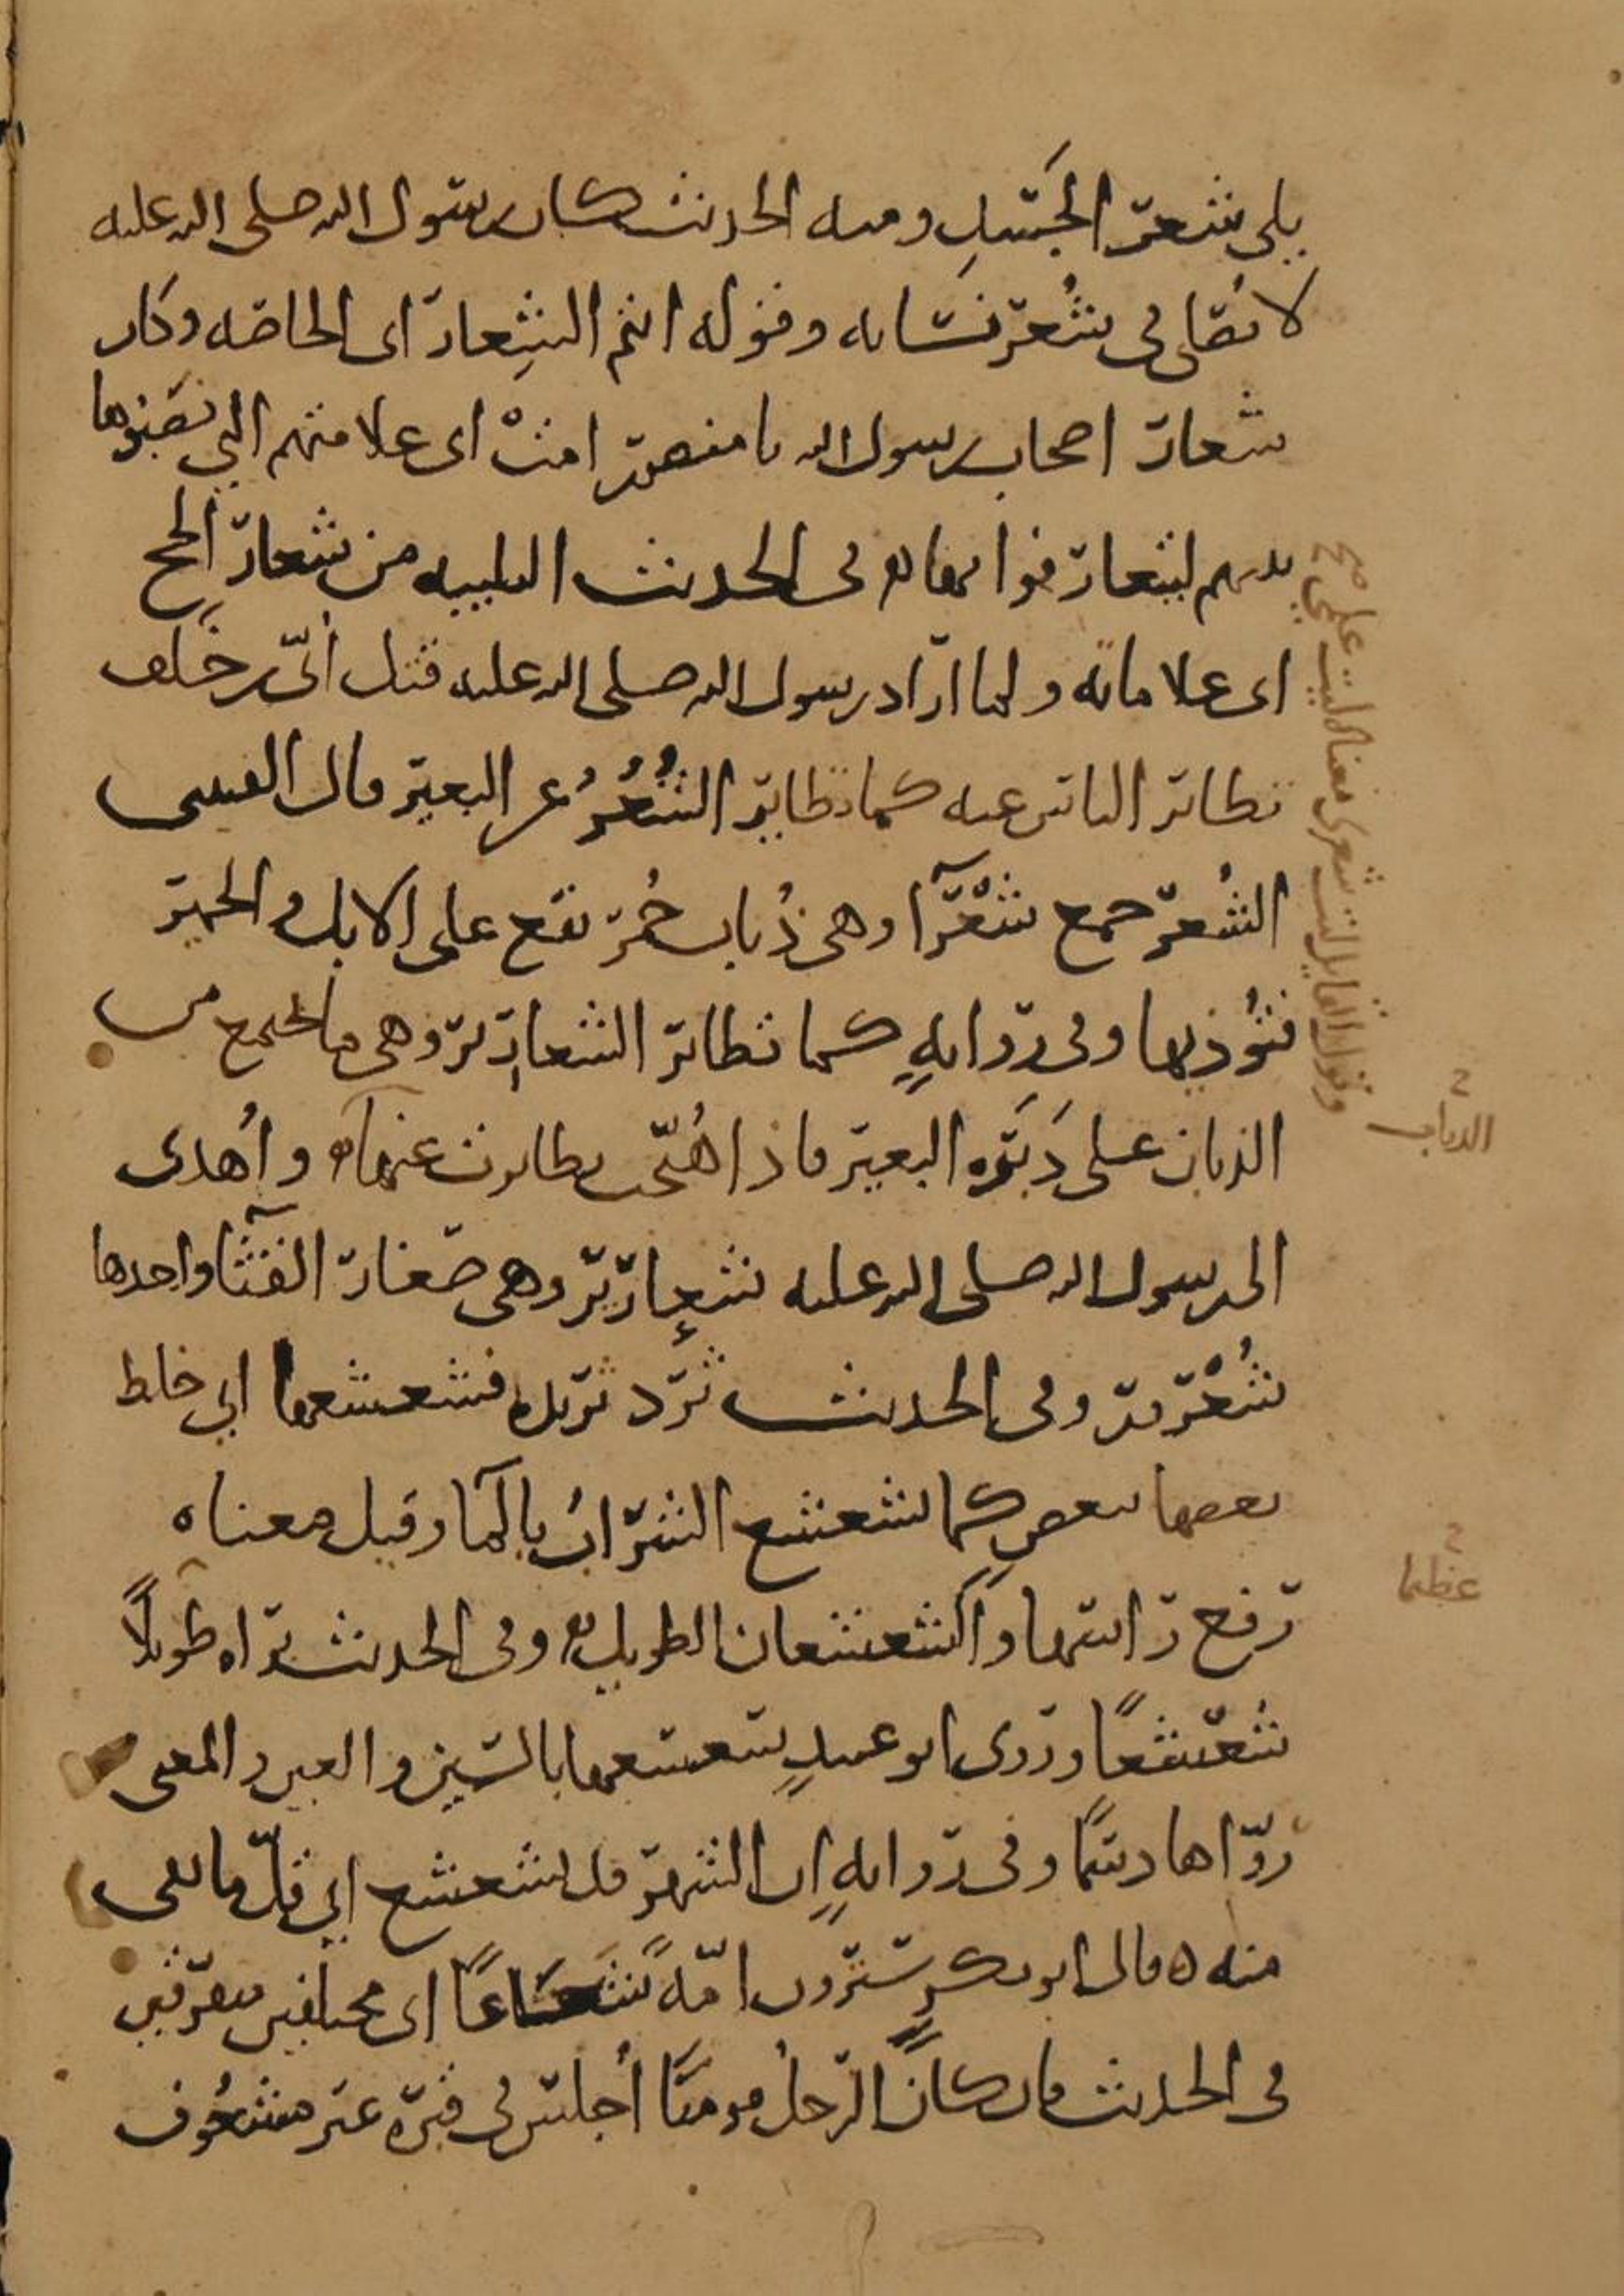 يلي شعر الجسد ومنه الحديث كان رسول الله صلى الله عليه
لا يصلي في شعر نسائه وقوله انتم الشعار اى الخاصه وكان
شعار اصحاب رسول الله يا منصور امت اى علامتهم التي نصبوها
بينهم ليتعارفوا بها ه في الحديث التلبيه من شعار الحج
اى علاماته ولما اراد رسول الله صلى الله عليه قتل أبيّ بن خلف
تطاير الناس عنه كما تطاير الشُّعْرُ عن البعير قال القتيبى
الشُعر جمع شَعْرَآ وهى ذُباب حُمر تقع على الابل والحمير
فتؤذيها وفي رواية كما تطاير الشعارير وهى ما اجتمع من
الذبان على دَبَره البعير فاذا هُيّجت تطايرت عنها ه وأهدى
الى رسول الله صلى الله عليه شعارير وهى صغار القثآ واحدها
شُعْرور وفي الحديث ثرد ثريده فشعشعها اي خلط
بعضها ببعضٍ كما يشعشع الشرابُ بالمآ وقيل معناه
رفع راسها والشعشعان الطويل ه وفي الحديث تراه طويلاً
شَعْشعًا وروى ابو عبيدٍ سعسعها بالسين والعين والمعنى
روّاها دسمًا وفي روايةٍ ان الشهر قد تشعشع اي قلّ ما بقى
منه ه قال ابو بكرٍ سترون امّةً شَعَاعًا اى مختلفين متفرقين
في الحديث فان كان الرجلُ مومنًا أُجلس في قبره غير مشعوف
وقول القايل ليت شعرى معناه ليت علمي صح
الذباب
عظلها